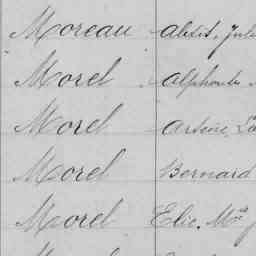 Moreau Alexis, Jul
Morel Alphonse
Morel Arsène, L
Morel Bernard
Morel Elie, M